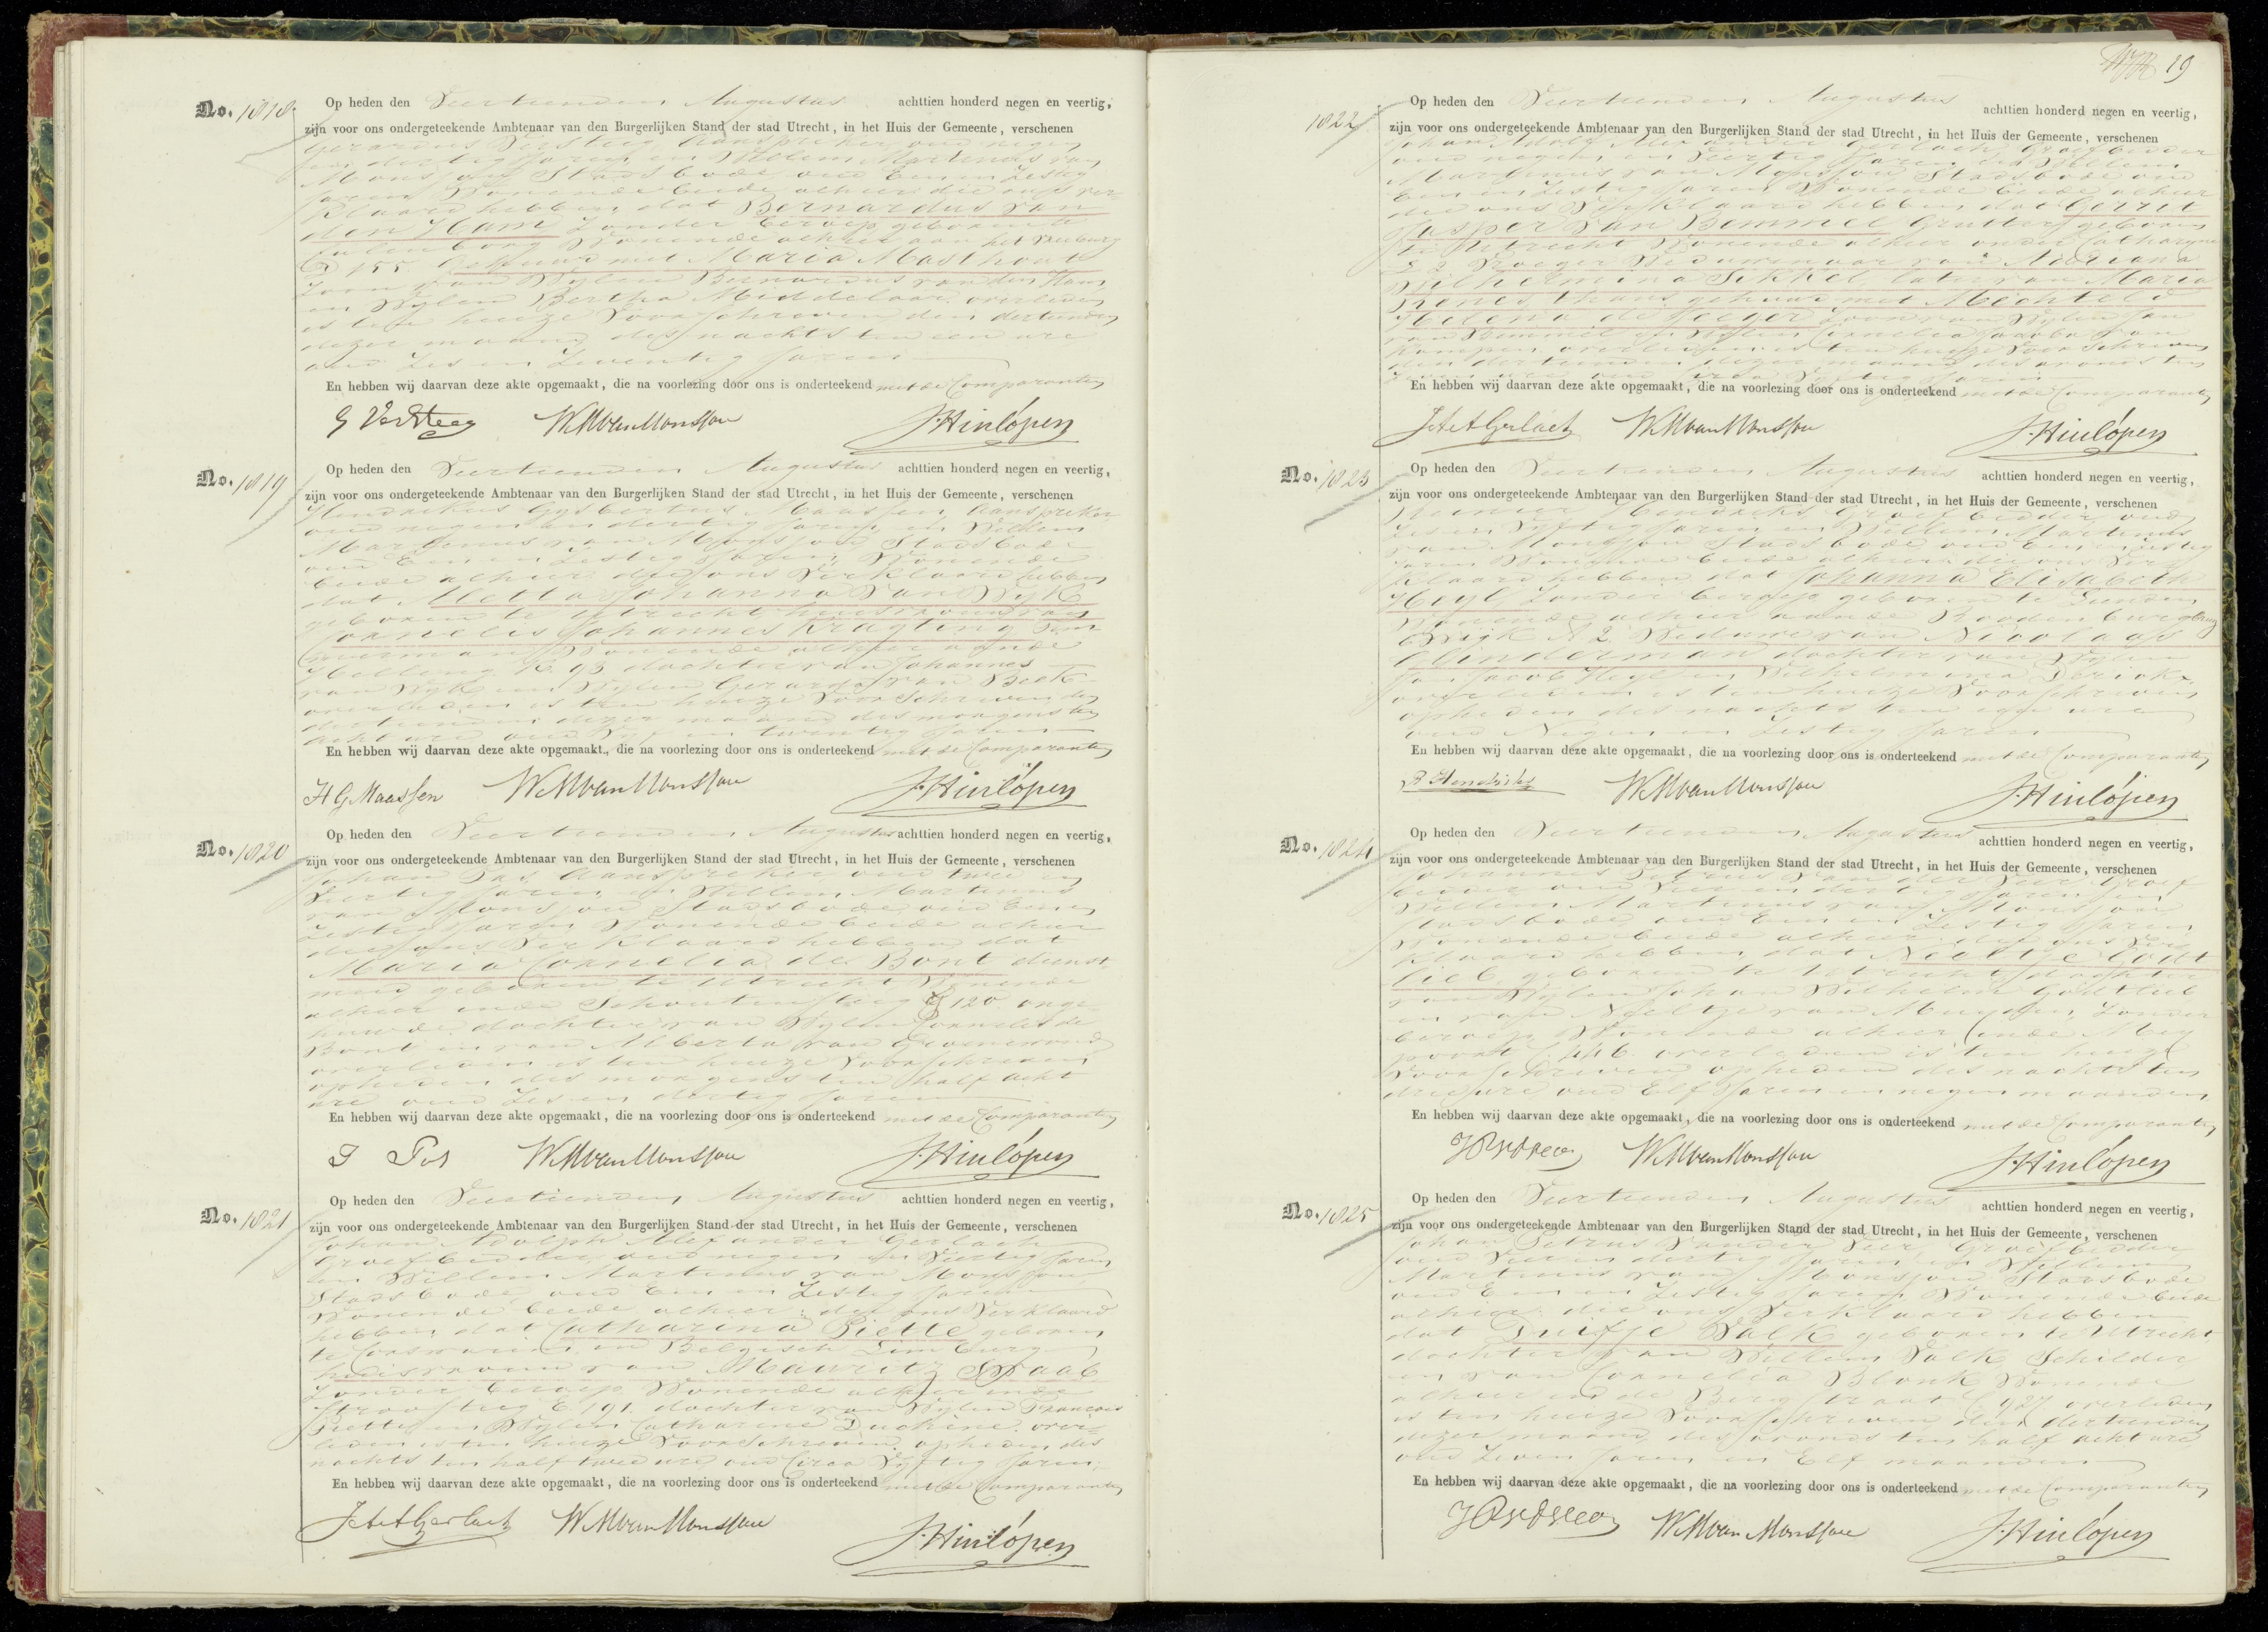 No. 1818.
Op heden den Veertienden Augustus achttien honderd negen en veertig,
zijn voor ons ondergeteekende Ambtenaar van den Burgerlijken Stand der stad Utrecht, in het Huis der Gemeente, verschenen
Gerardus Versteeg Aanspreker, oud negen
en dertig Jaren en Willem Martinus van
Monsjou Stadsbode oud Een en Zestig
Jaren Wonende beide alhier; die ons ver-
klaard hebben, dat Bernardus van
den Ham Zonder beroep geboren te
Culenborg Wonende alhier aan het Vreeburg
D 155. Gehuwd met Maria Masthout
Zoon van Wylen Bernardus van den Ham
en Wylen Bertha Middelaar, overleden
is ten huize Voorschreven den dertienden
dezer maand des nachts ten een ure
oud Zes en Zeventig Jaren
En hebben wij daarvan deze akte opgemaakt, die na voorlezing door ons is onderteekend met de Comparanten
G Versteeg WMvanMonsjou J. Hinlópen
No. 1819
Op heden den Veertienden Augustus achttien honderd negen en veertig,
zijn voor ons ondergeteekende Ambtenaar van den Burgerlijken Stand der stad Utrecht, in het Huis der Gemeente, verschenen
Hendrikus Gysbertus Maassen, Aanspreker
oud negen en dertig Jaren, en Willem
Martinus van Monsjou Stadsbode
oud Een en Zestig Jaren Wonende
beide alhier die ons Verklaard hebben
dat Aletta Johanna van Wyk
geboren te Utrecht huisvrouw van
Cornelis Johannes Kragting Tim
merman Wonende alhier aande
Helling K 93 dochter van Johannes
van Wyk en Wylen Gerarda van Beek
overleden is ten huize Voorschreven den
dertienden dezer maand des morgens ten
acht ure oud Vyf en twintig Jaren
En hebben wij daarvan deze akte opgemaakt, die na voorlezing door ons is onderteekend met de Comparanten
H G Maassen WMvanMonsjou J. Hinlópen
No. 1820
Op heden den Veertienden Augustus achttien honderd negen en veertig,
zijn voor ons ondergeteekende Ambtenaar van den Burgerlijken Stand der stad Utrecht, in het Huis der Gemeente, verschenen
Johan Pas, Aanspreker oud twee en
Veertig Jaren en Willem Martinus
van Monsjou Stadsbode oud Een en
Zestig Jaren Wonende beide alhier
die ons Verklaard hebben dat
Maria Cornelia de Bont dienst
meid geboren te Utrecht Wonende
alhier inde Schoutensteeg G 120 onge
huwde dochter van Wylen Cornelis de
Bont en van Alberta van Groenewoud
overleden is ten huize Voorschreven
opheden des morgens ten half acht
ure oud Zes en dertig Jaren
En hebben wij daarvan deze akte opgemaakt, die na voorlezing door ons is onderteekend met de Comparanten
J Pas WMvanMonsjou J. Hinlópen
No. 1821
Op heden den Veertienden Augustus achttien honderd negen en veertig,
zijn voor ons ondergeteekende Ambtenaar van den Burgerlijken Stand der stad Utrecht, in het Huis der Gemeente, verschenen
Johan Adolph Alexander Gerlach
Groefbidder, oud negen en Veertig Jaren
en Willem Martinus van Monsjou
Stadsbode oud Een en Zestig Jaren
Wonende beide alhier: die ons Verklaard
hebben, dat Catharina Piette geboren
te in Belgisch Limburg
huisvrouw van Mauritz Spraab
Zonder beroep Wonende alhier inde
Strosteeg E 191. dochter van Wylen Francois
Piette en Wylen Catharine Duchène. over-
leden is ten huize Voorschreven, opheden des
nachts ten half twee ure oud Circa Vyftig Jaren
En hebben wij daarvan deze akte opgemaakt, die na voorlezing door ons is onderteekend met de Comparanten
JAAGerlach WMvanMonsjou J. Hinlópen
19
1822
Op heden den Veertienden Augustus achttien honderd negen en veertig,
zijn voor ons ondergeteekende Ambtenaar van den Burgerlijken Stand der stad Utrecht, in het Huis der Gemeente, verschenen
Johan Adolf Alexander Gerlach Groefbidder
oud negen en Veertig Jaren en Willem
Martinus van Monsjou Stadsbode oud
Een en Zestig Jaren Wonende beide alhier
die ons Verklaard hebben, dat Gerrit
Jasper van Bemmel Grutter geboren
te Utrecht Wonende alhier onder Catharyne
Vroeger Weduwenaar van Adriana
Wilhelmina Sikkel, later van Maria
thans gehuwd met Mechteld
Helena de Jeeger Zoon van Wylen Jan
van Bemmel en Wylen Cornelia Jacoba van
Kampen overleden is ten huize Voorschreven
den dertienden dezer maand des avonds ten
En hebben wij daarvan deze akte opgemaakt, die na voorlezing door ons is onderteekend met de Comparanten
JAAGerlach WMvanMonsjou J. Hinlópen
No. 1823
Op heden den Veertienden Augustus achttien honderd negen en veertig,
zijn voor ons ondergeteekende Ambtenaar van den Burgerlijken Stand der stad Utrecht, in het Huis der Gemeente, verschenen
Reinier Hendriks Groefbidder oud
Zes en Vyftig Jaren en Willem Martinus
van Monsjou Stadsbode oud Een en Zestig
Jaren Wonende beide alhier die ons Ver-
klaard hebben dat Johanna Elisabeth
Heyl Zonder beroep geboren te Leusden
Wonende alhier aande Roodenburgbrug
Wyk A 2 Weduwe van Nicolaas
Glinderman dochter van Wylen
Jan Jacob Heyl en Wilhelmina Derickx
overleden is ten huize Voorschreven
opheden des nachts ten een ure
oud Negen en Zestig Jaren
En hebben wij daarvan deze akte opgemaakt, die na voorlezing door ons is onderteekend met de Comparanten
R Hendriks WMvanMonsjou J. Hinlópen
No. 1824
Op heden den Veertienden Augustus achttien honderd negen en veertig,
zijn voor ons ondergeteekende Ambtenaar van den Burgerlijken Stand der stad Utrecht, in het Huis der Gemeente, verschenen
Johannes Petrus van der Veer Groef
bidder oud Vier en dertig Jaren en
Willem Martinus van Monsjou
Stadsbode oud Een en Zestig Jaren
Wonende beide alhier: die ons Ver
klaard hebben, dat Neeltje Godt
lieb geboren te Utrecht dochter
van Wylen Johan Wilhelm Godtlieb
en van Neeltje van Muyden, Zonder
beroep Wonende alhier inde Mey
poort C 446. overleden is ten huize
Voorschreven opheden des nachts ten
drie ure oud Elf Jaren en negen maanden
En hebben wij daarvan deze akte opgemaakt, die na voorlezing door ons is onderteekend met de Comparanten
WMvanMonsjou J. Hinlópen
No. 1825
Op heden den Veertienden Augustus achttien honderd negen en veertig,
zijn voor ons ondergeteekende Ambtenaar van den Burgerlijken Stand der stad Utrecht, in het Huis der Gemeente, verschenen
Johan Petrus van der Veer, Groefbidder
oud Vier en dertig Jaren en Willem
Martinus van Monsjou Stadsbode
oud Een en Zestig Jaren Wonende beide
alhier: die ons Verklaard hebben
dat Duifje Valk geboren te Utrecht,
dochter van Willem Valk Schilder
en van Cornelia Blonk Wonende
alhier in de Bergstraat C 927 overleden
is ten huize Voorschreven den dertienden
dezer maand des avonds ten half acht ure
oud Zeven Jaren en Elf maanden
En hebben wij daarvan deze akte opgemaakt, die na voorlezing door ons is onderteekend met de Comparanten
WMvan Monsjou J. Hinlópen